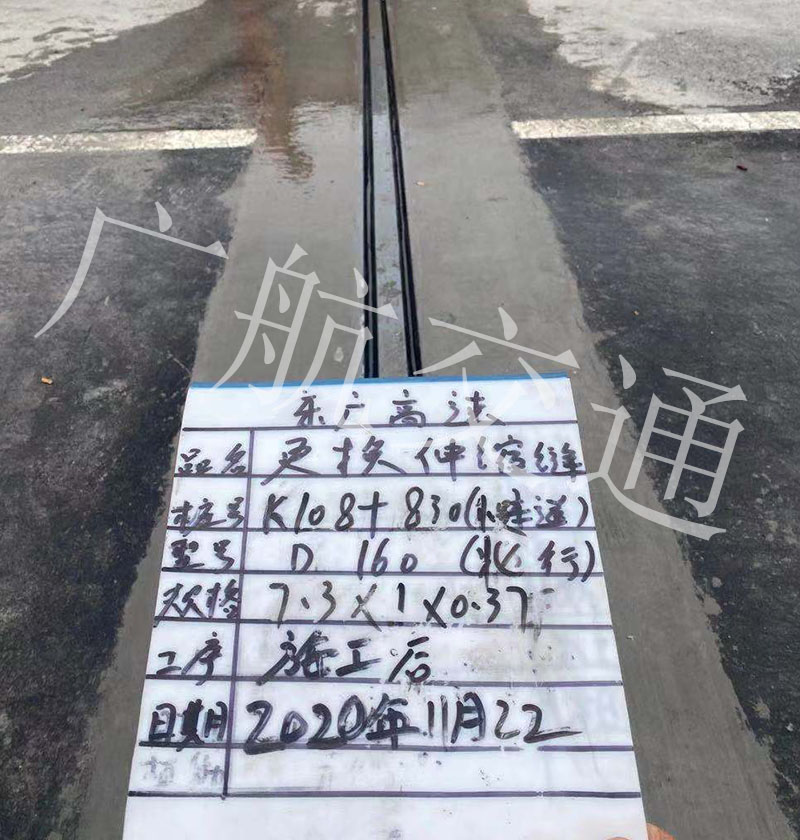 广航交通
乐广高速
品名 更换伸缩缝
桩号 K108+830(隧道)
型号 D 160 (北行)
规格 7.3X1X0.37
工序 施工后
日期 2020年11月22